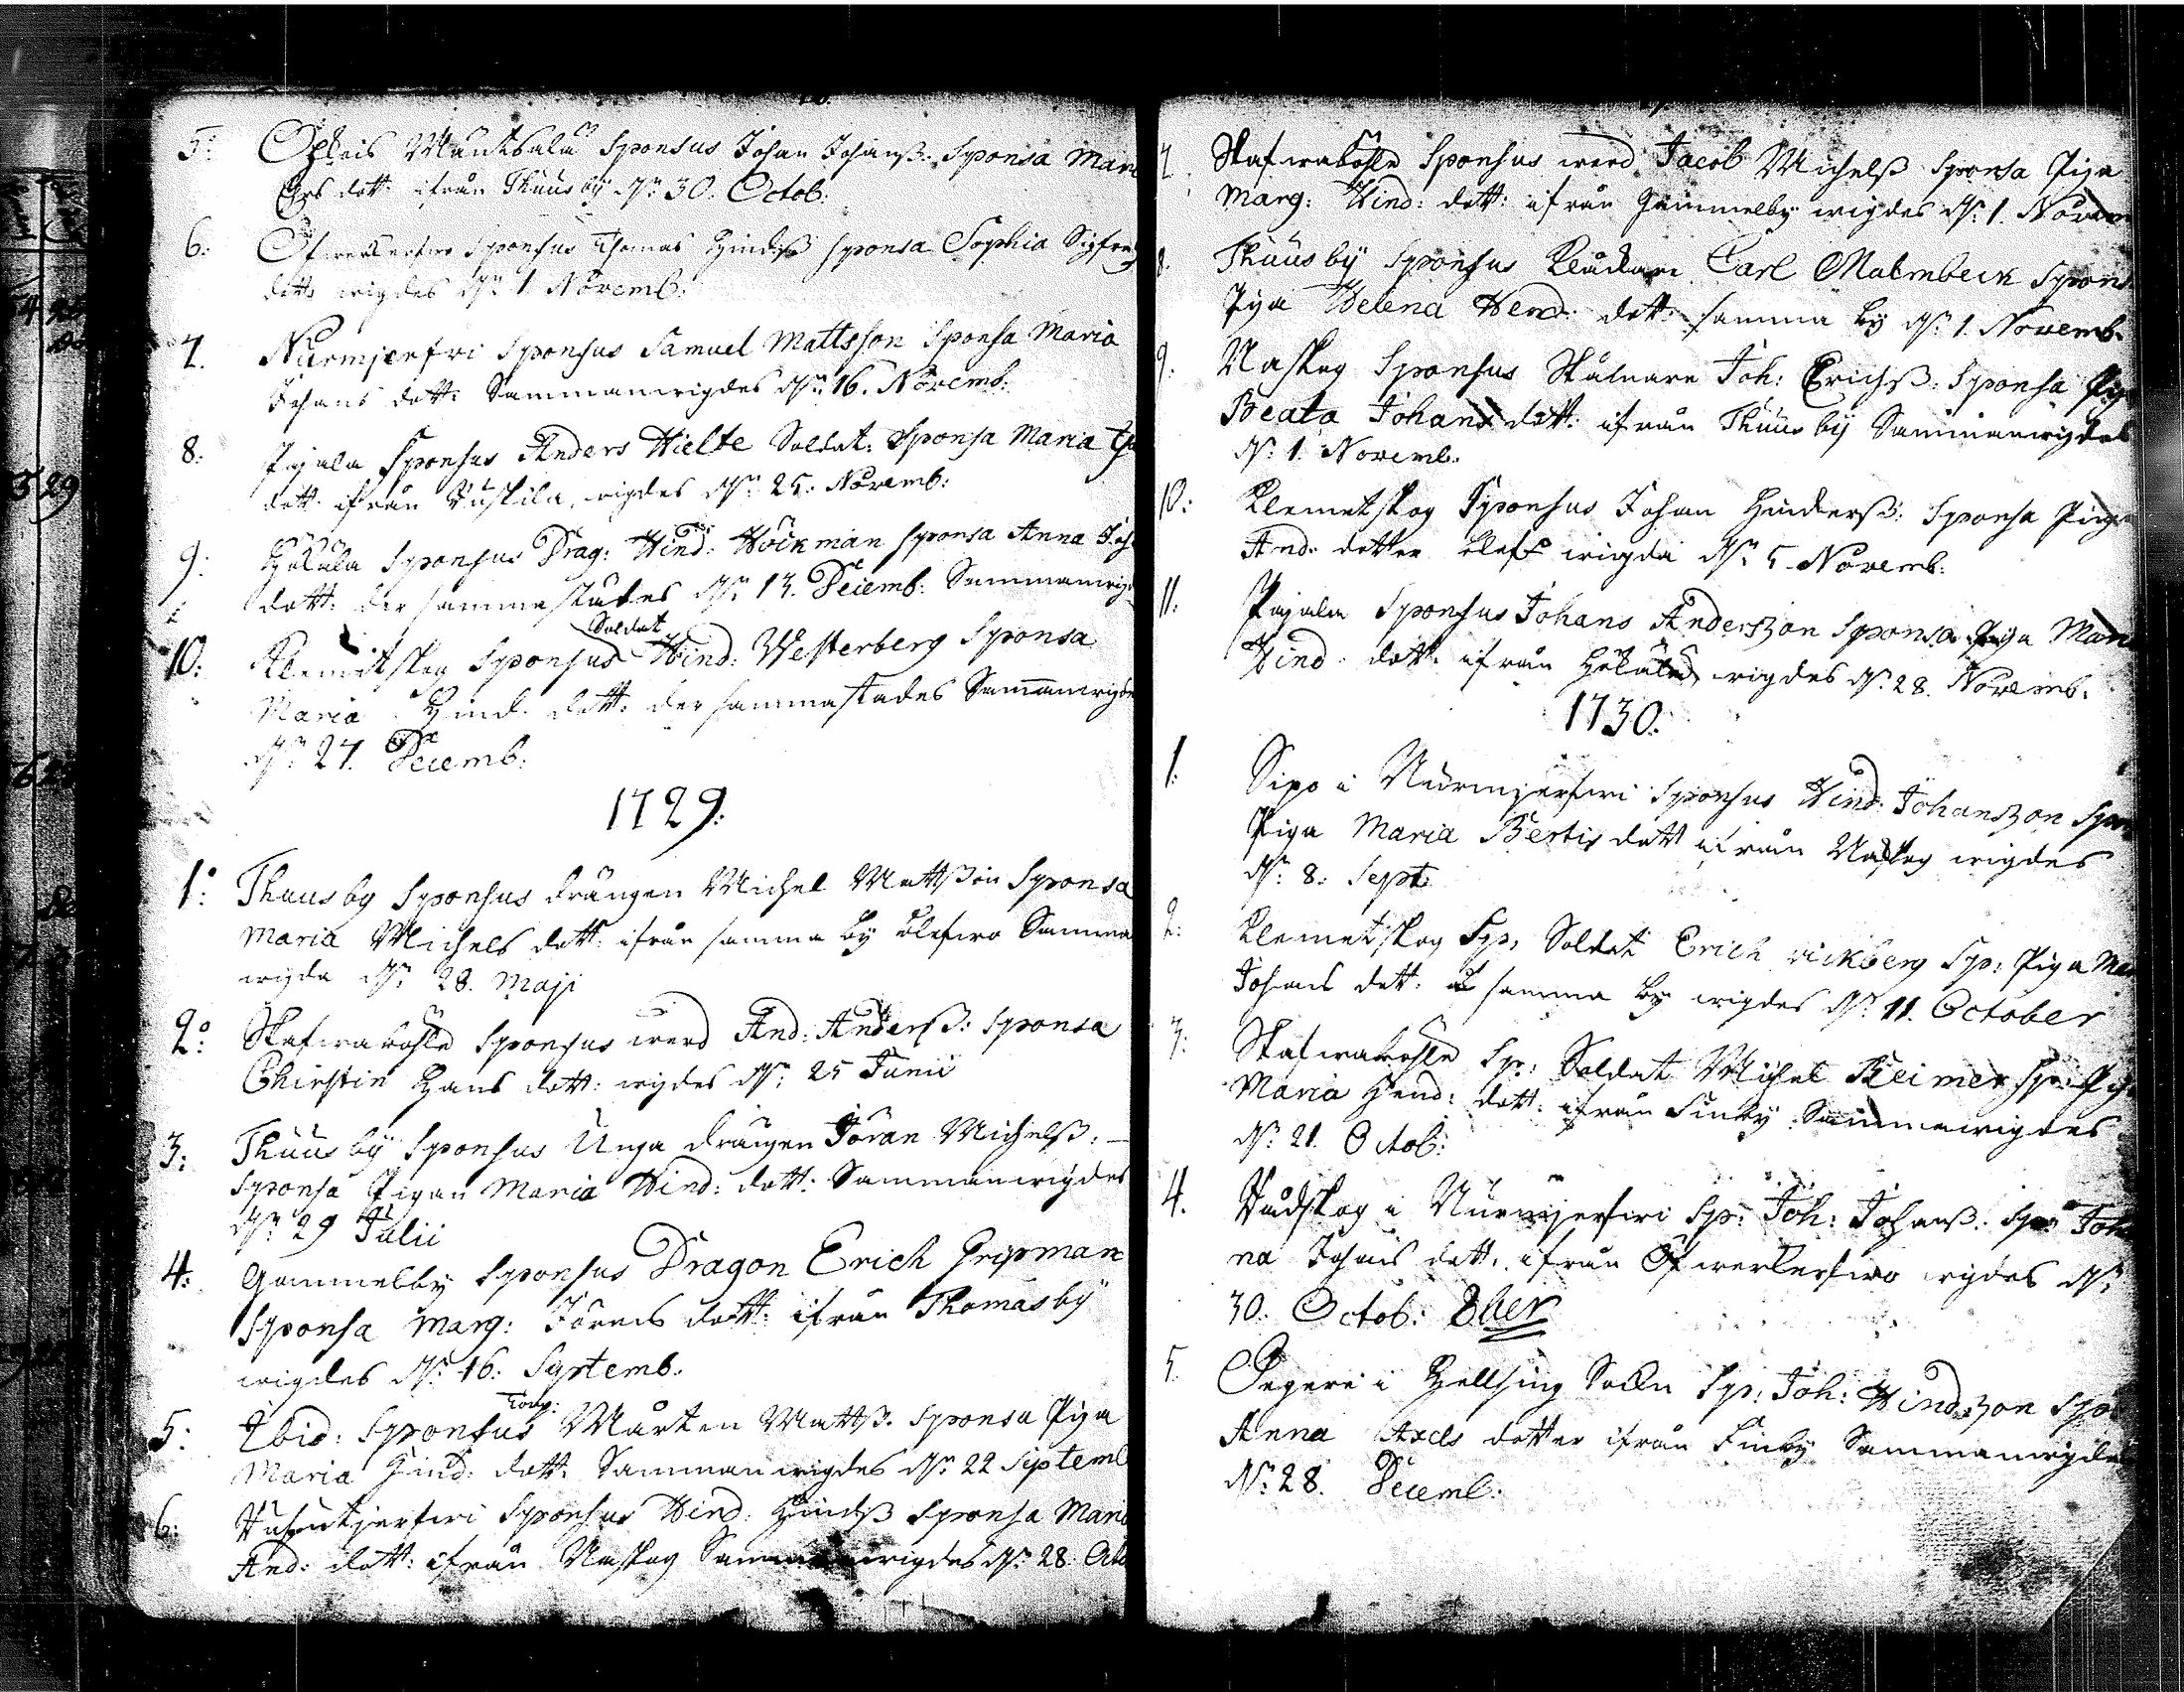 5: Opleis Mankala Sponsus Johan Johanß: Sponsa Mari
Ers dott: ifrån Thuusby dn: 30. Octob:
6: Ofwerkerfwo Sponsus Thomas Hindß Sponsa Sophia Sigfre
dott: wigdes dn: 1 Novemb:
7. Nurmjerfwi Sponsus Samuel Mattsson Sponsa Maria
Johans dott: Sammanwigdes dn: 16. Novemb:
8: Pajala Sponsus Anders Hielte Soldat: Sponsa Maria
dott ifrån wigdes dn: 25: Novemb:
9: Hökula Sponsus Drag: Hind: Höckman Sponsa Anna Joh
dott: der sammastädes dn: 13. Decemb: Sammanwigd
10: Klemetskog Sponsus Soldat Hind: Westerberg Sponsa
Maria Hind. dott: der sammastades Sammanwigde
dn: 27. Decemb:
1729:
1: Thuusby Sponsus drängen Michel Mattßon Sponsa
Maria Michels dott: ifrån samma by blefwo Samman
wigda dn: 28. Maji
2: Skafwaböhle Sponsus werd And: Anderß: Sponsa
Chirstin Hans dott: wigdes dn: 25 Junii
3: Thuusby Sponsus Unga drängen Jöran Michelß: –
Sponsa Pigan Maria Hind: dott: Sammanwigdes
dn: 29 Julii
4: Gammelby Sponsus Dragon Erich Gripman
Sponsa Marg: Jörens dott: ifrån Thomasby
wigdes dn: 16: Septemb:
5: Ibid: Sponsus Torp: Mårten Mattß. Sponsa Piga
Maria Hind: dott: Sammanwigdes dn: 22 Septemb
6: Sponsus Hind: Hindß Sponsa Maria
And: dott: ifrån Naskog Sammanwigdes dn: 28. Octo
7. Skafwaböhle Sponsus werd Jacob Michelß Sponsa Piga
Marg: Hind: dott: ifrån Gammelby wigdes dn: 1. Novem
8. Thuusby Sponsus Klåckare Carl Malmbeck Spons
Piga Helena Hend: dott: samma by dn: 1. Novemb.
9: Naskog Sponsus Joh: Erichß: Sponsa Pig
Beata Johans dott: ifrån Thuusby Sammanwigdes
dn: 1. Novemb.
10: Klemetskog Sponsus Johan Hinderß: Sponsa Piga
And: dotter blef wigda dn: 5 Novemb:
11. Pajala Sponsus Johans Anderszon Sponsa Piga Mari
Hind: dott: ifrån Hökula wigdes dn: 28. Novemb.
1730:
1: Sipo i Nurmjerfwi Sponsus Hind: Johanszon Spon
Piga Maria Bertis dott ifrån Naskog wigdes
dn: 8: Sept:
2: Klemetskog Sp: Soldat Erich wickberg Sp: Piga Mar
Johans dott: samma by wigdes dn: 11. October
3: Skafwaböhle Sp: Soldat Michel Reimer Sp: Pig
Maria Hend: dott: ifrån Finby Sammanwigdes
dn: 21. Octob:
4. i Nurmjerfwi Sp: Joh: Johanß: Sp: Joha
na Johans dott: ifrån Ofwerkerfwo wigdes dn:
30. Octob: 8ber
5. i Hellsing Sockn Sp: Joh: Hindszon Spo
Anna Axels dotter ifrån Finby Sammanwigdes
dn: 28. Decemb: